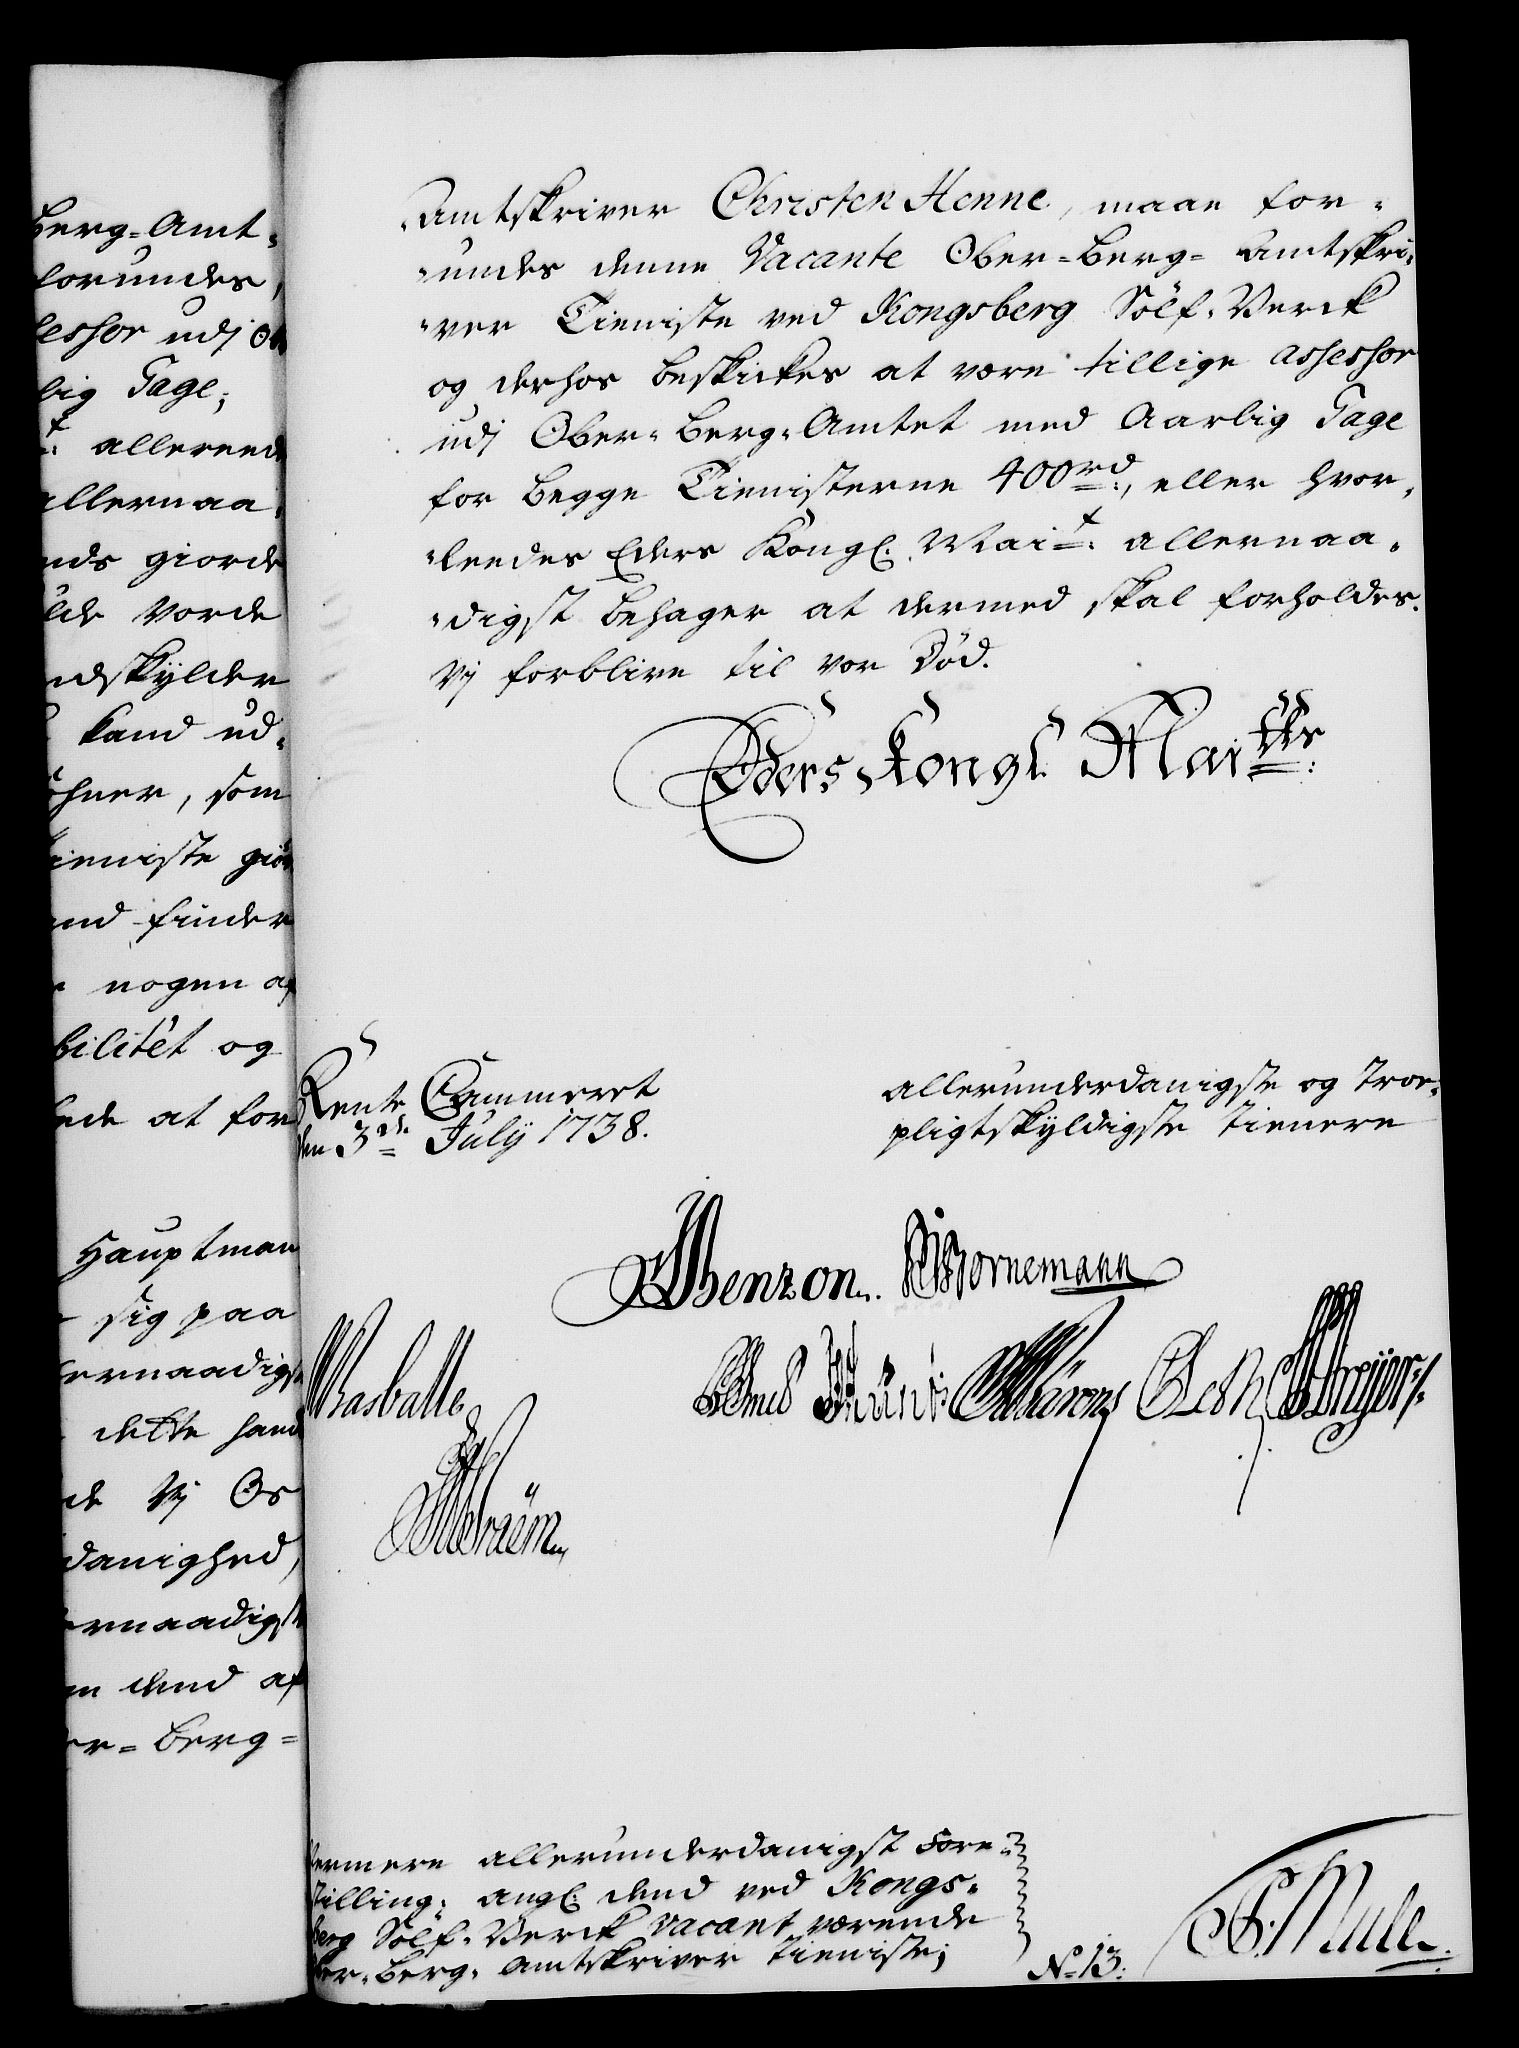 Berg-Amt-
forundes,
sessor udj Ob
lig Gage;
allereede
allernaa-
nds giorde
lde vorde
ndskylder
kand ud-
öhner, som
ieniste giör
nd finder
nogen af
bilitét og
ede at for
Hauptman
sig paa
ernaadigst
dette hand
de Vj Os
danighed,
ernaadigst
m dend af
er-Berg-
Amtskriver Christen Henne, maae for-
undes denne Vacante Ober-Berg-Amtskri-
ver Tieniste ved Kongsberg Sölf-Verck
og derhos beskickes at være tillige Assessor
udj Ober-Berg-Amtet med Aarlig Gage
for begge Tienisterne 400 rd:, eller hvor-
leedes Eders Kongl. Mait: allernaa-
digst behager at dermed skal forholdes.
Vj forblive til vor Död.
Eders Kongl. Maitts:
Rente Cammeret
den 3de July 1738.
allerunderdanigste og Troe-
pligtskyldigste Tienere
Benzon. Bornemann
Basballe
Meyer
Fræem
Nermere allerunderdanigst Fore-
stilling; angl. dend ved Kongs-
berg Sölf-Verck vacant værende
Ober-Berg-Amtskriver Tieniste;
No 13.
Mule.